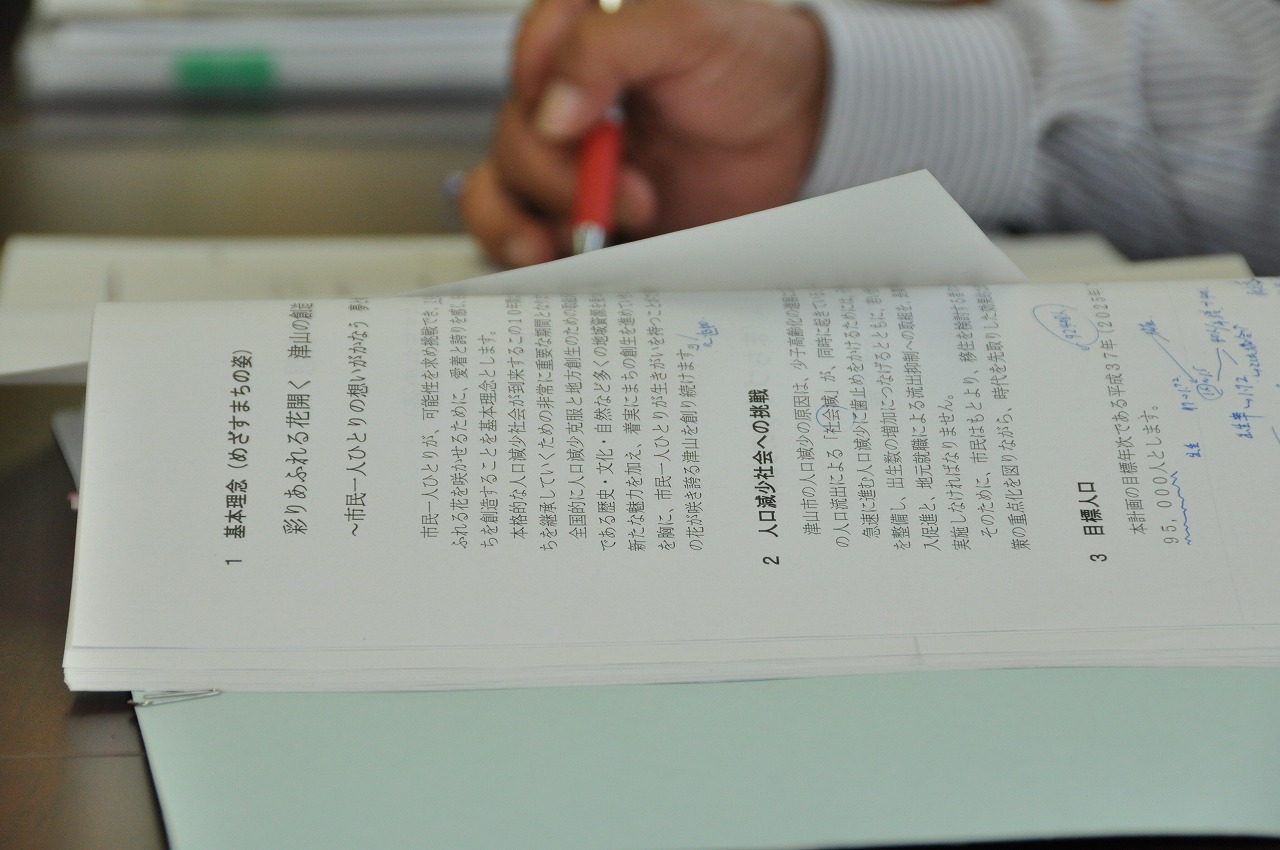 1 基本理念（めざすまちの姿）
彩りあふれる花開く 津山の創造
～市民一人ひとりの想いがかなう 夢
市民一人ひとりが、可能性を求め挑戦でき、
ふれる花を咲かせるために、愛着と誇りを感じ
ちを創造することを基本理念とします。
本格的な人口減少社会が到来するこの１０年
ちを継承していくための非常に重要な期間となり
全国的に人口減少克服と地方創生のための取組
である歴史・文化・自然など多くの地域資源を
新たな魅力を加え、着実にまちの創生を進めてい
を胸に、市民一人ひとりが生きがいを持つことが
の花が咲き誇る津山を創り続けます。
2 人口減少社会への挑戦
津山市の人口減少の原因は、少子高齢化の
の人口流出による「社会減」が、同時に起きてい
急速に進む人口減少に歯止めをかけるためには、
を整備し、出生数の増加につなげるとともに、
入促進と、地元就職による流出抑制への取組を、
実施しなければなりません。
そのために、市民はもとより、移住を検討する
策の重点化を図りながら、時代を先取りした
3 目標人口
本計画の目標年次である平成３７年（２０２５年
９５，０００人とします。